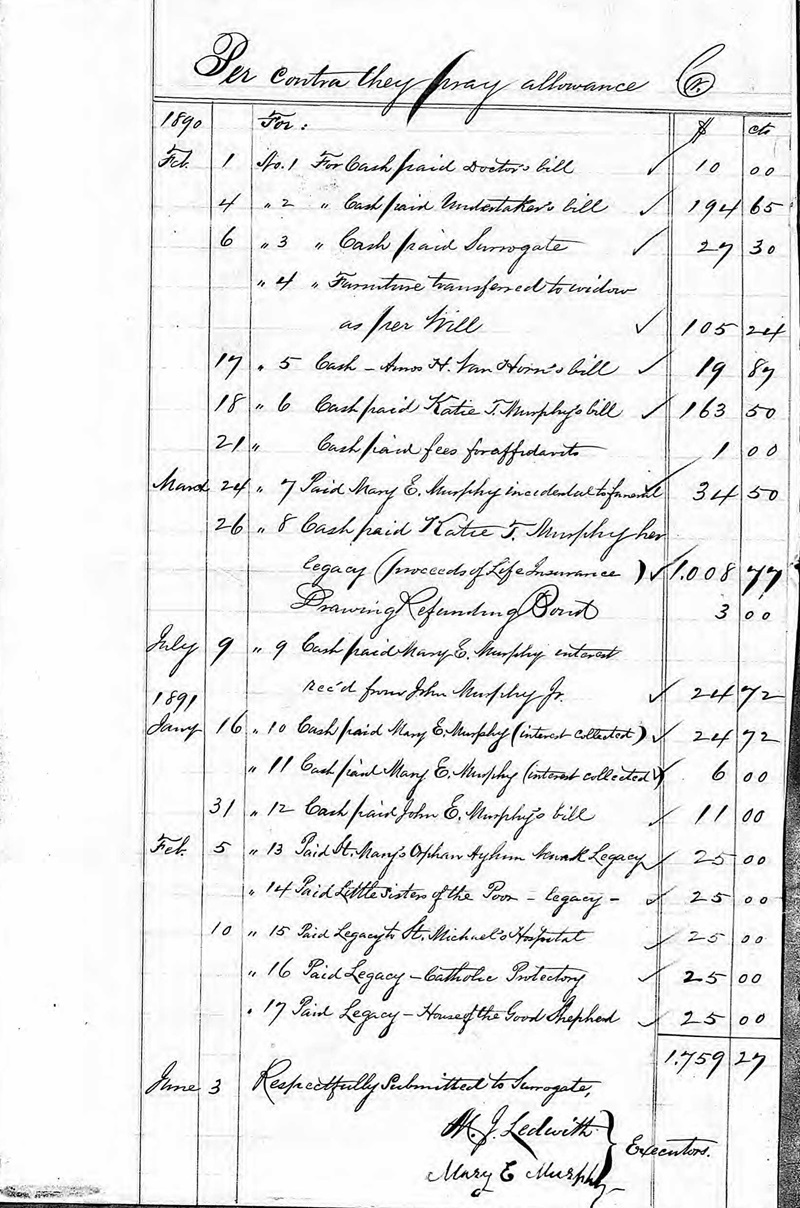 Per contra they pray allowance Cr.
1890 For: $ cts
Feb. 1 No. 1 For Cash paid Doctor's bill ✓ 10 00
4 " 2 " Cash paid Undertaker's bill ✓ 194 65
6 " 3 " Cash paid Surrogate ✓ 27 30
" 4 " Furniture transferred to widow
as per Will ✓ 105 24
17 " 5 Cash – Amos H. Van Horn's bill ✓ 19 87
18 " 6 Cash paid Katie T. Murphy's bill ✓ 163 50
21 " Cash paid fees for affidavits 1 00
March 24 " 7 Paid Mary E. Murphy incidental to funeral ✓ 34 50
26 " 8 Cash paid Katie T. Murphy her
legacy (proceeds of Life Insurance ) ✓ 1.008 77
Drawing Refunding Bond 3 00
July 9 " 9 Cash paid Mary E. Murphy interest
rec'd from John Murphy Jr. ✓ 24 72
1891
Jany 16 " 10 Cash paid Mary E. Murphy (interest collected) ✓ 24 72
" 11 Cash paid Mary E. Murphy (interest collected) ✓ 6 00
31 " 12 Cash paid John E. Murphy's bill ✓ 11 00
Feb. 5 " 13 Paid St. Mary's Orphan Asylum Newark Legacy ✓ 25 00
" 14 Paid Little Sisters of the Poor – legacy – ✓ 25 00
10 " 15 Paid Legacy to St. Michael's Hospital ✓ 25 00
" 16 Paid Legacy – Catholic Protectory ✓ 25 00
" 17 Paid Legacy – House of the Good Shepherd ✓ 25 00
1.759 27
June 3 Respectfully Submitted to Surrogate,
M. J. Ledwith
Mary E Murphy } Executors.